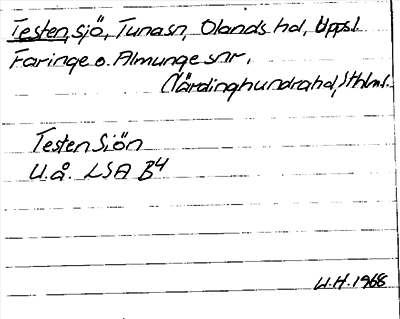 Testen, sjö, Tuna sn, Olands hd, Uppsl.
Faringe o. Almunge snr,
(Närdinghundra hd, Sthlms l.
Testen Siön
U.å. LSA B4
U.H. 1968